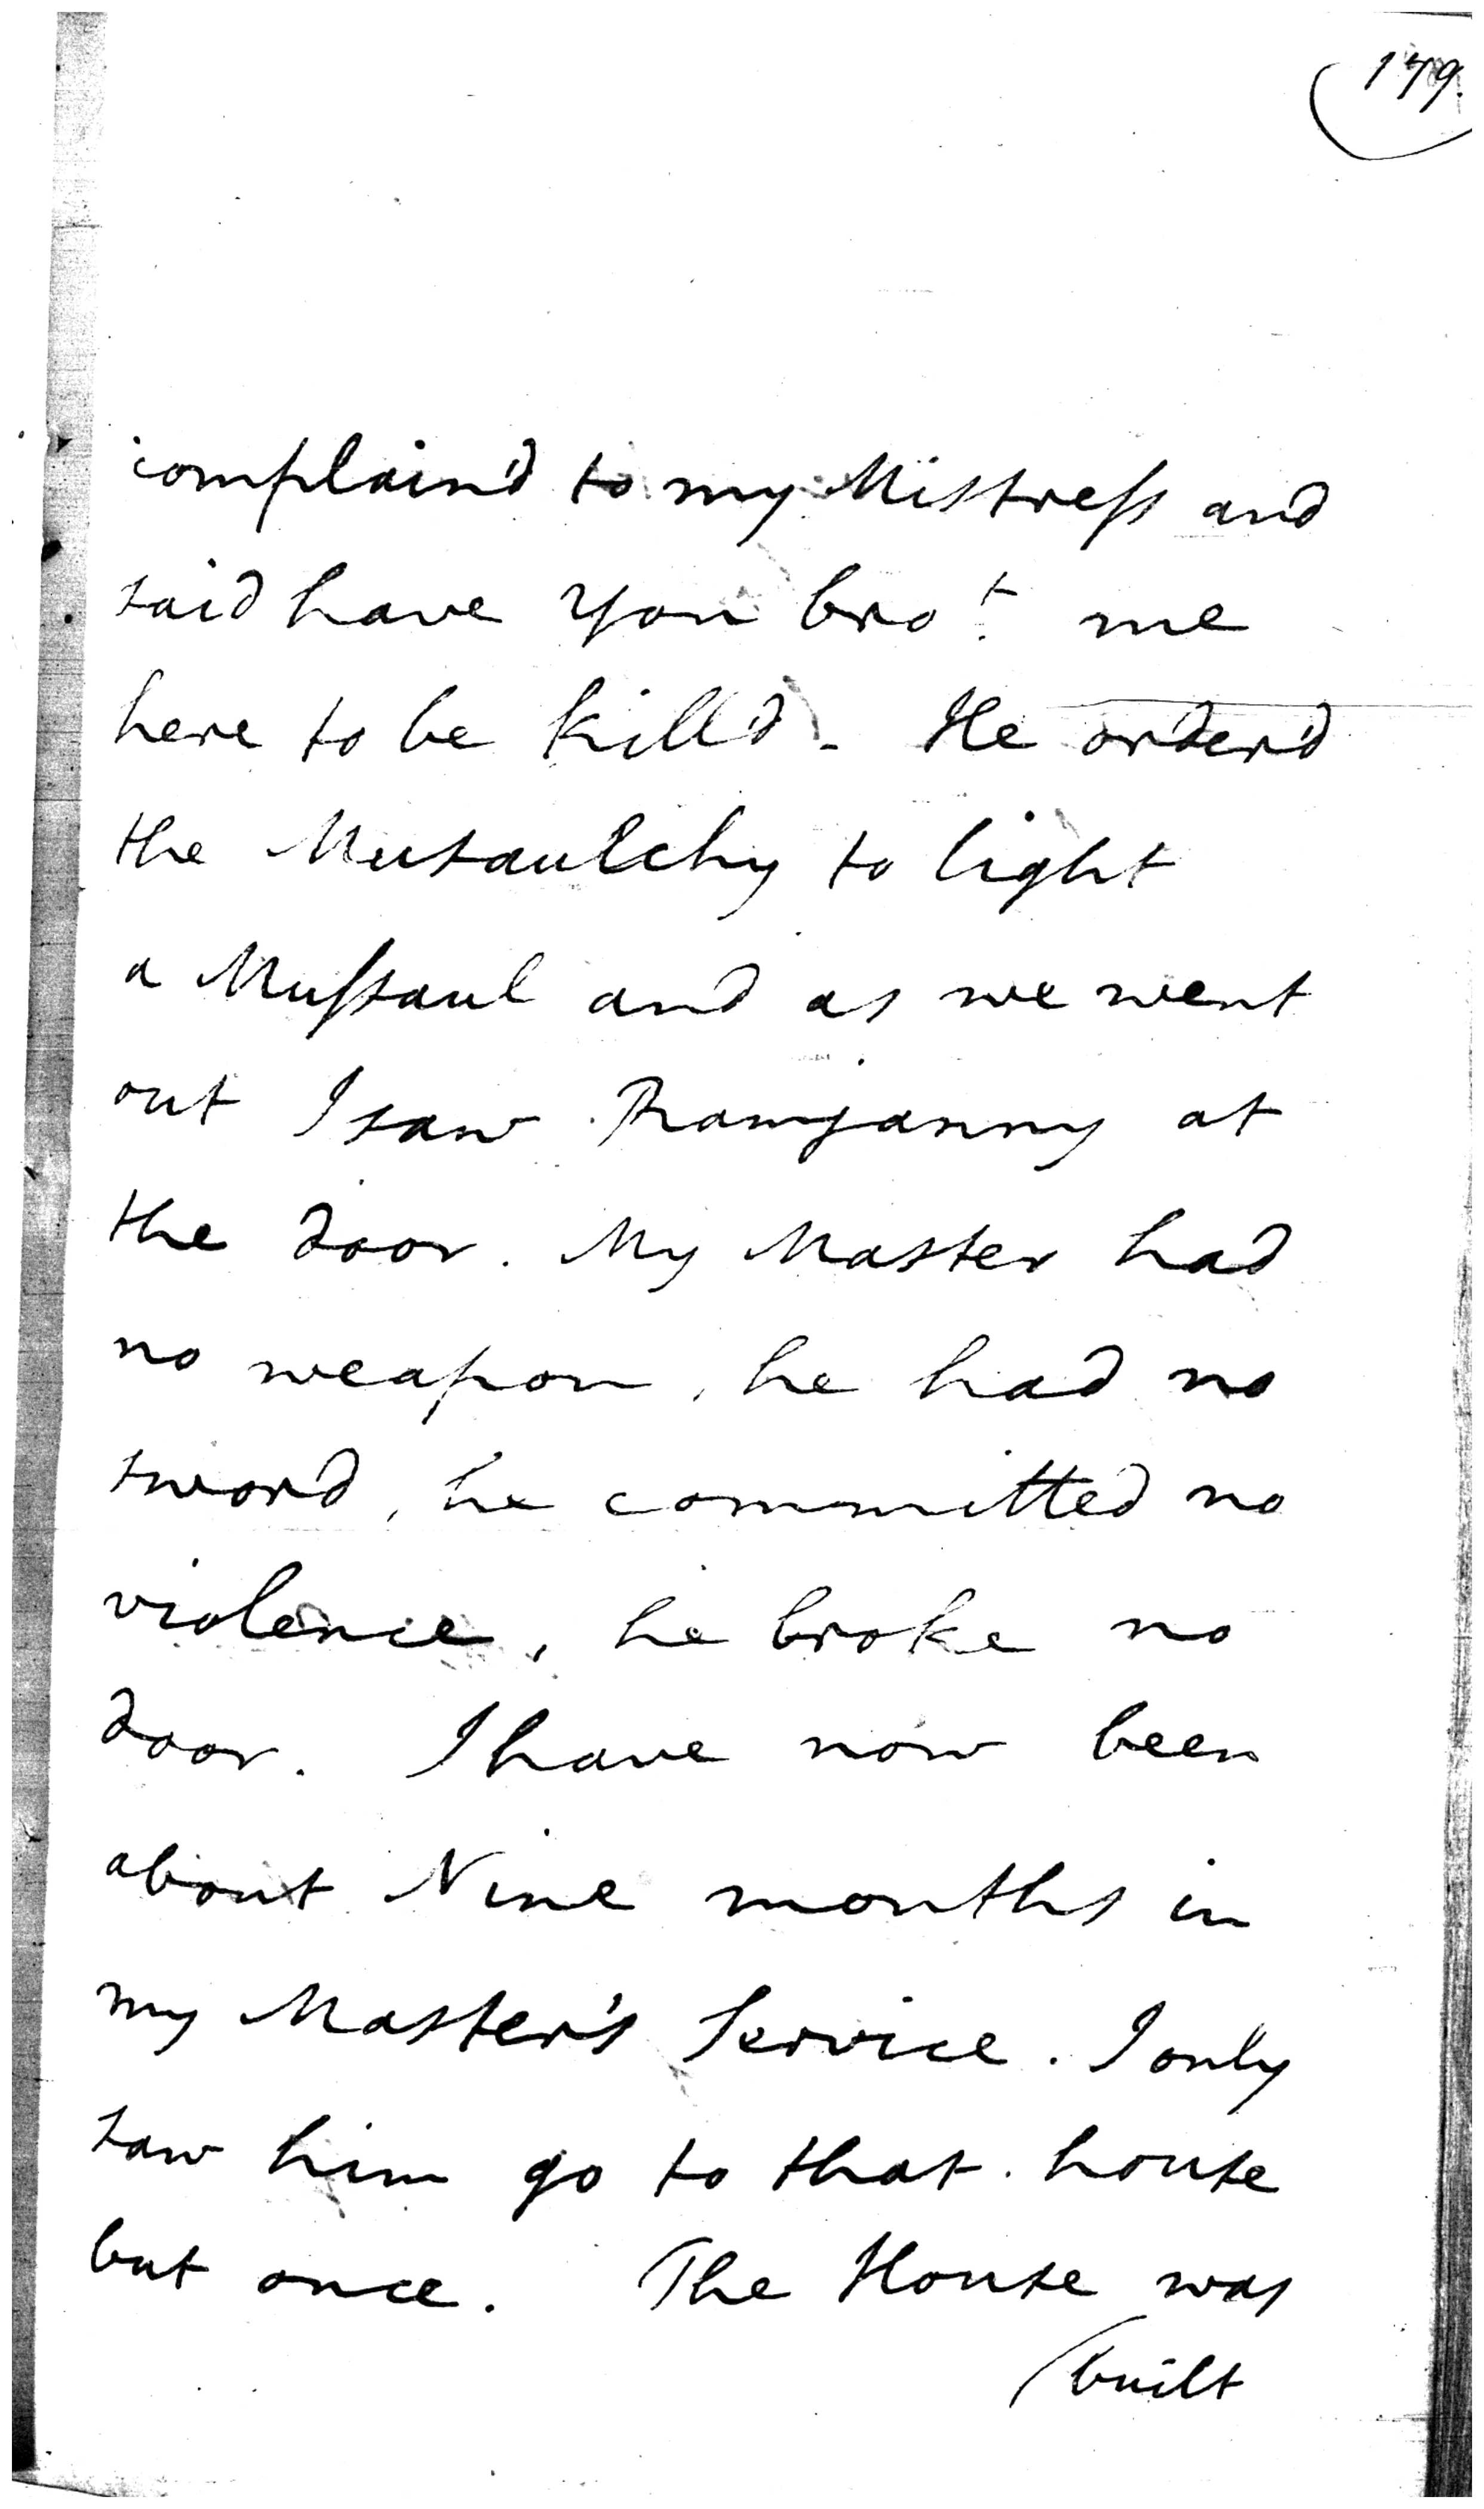 149.
complain'd to my Mistress and
said have you bro.t me
here to be kill'd. He order'd
the Musaulchy to light
a Mussaul and as we went
out I saw Ramjanny at
the door. My Master had
no weapon, he had no
sword, he committed no
violence, he broke no
door. I have now been
about Nine months in
my Master's Service. I only
saw him go to that house
but once. The House was
built